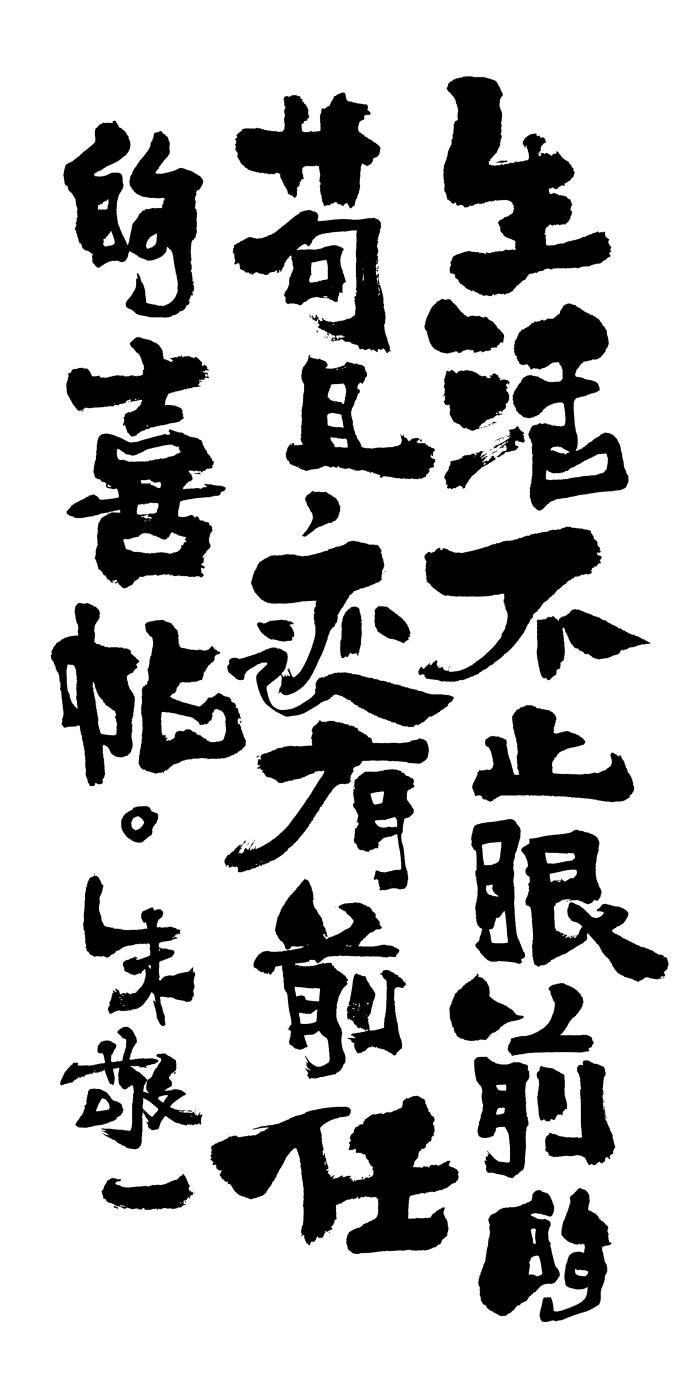 生活不止眼前的
苟且还有前任
的喜帖。朱敬一